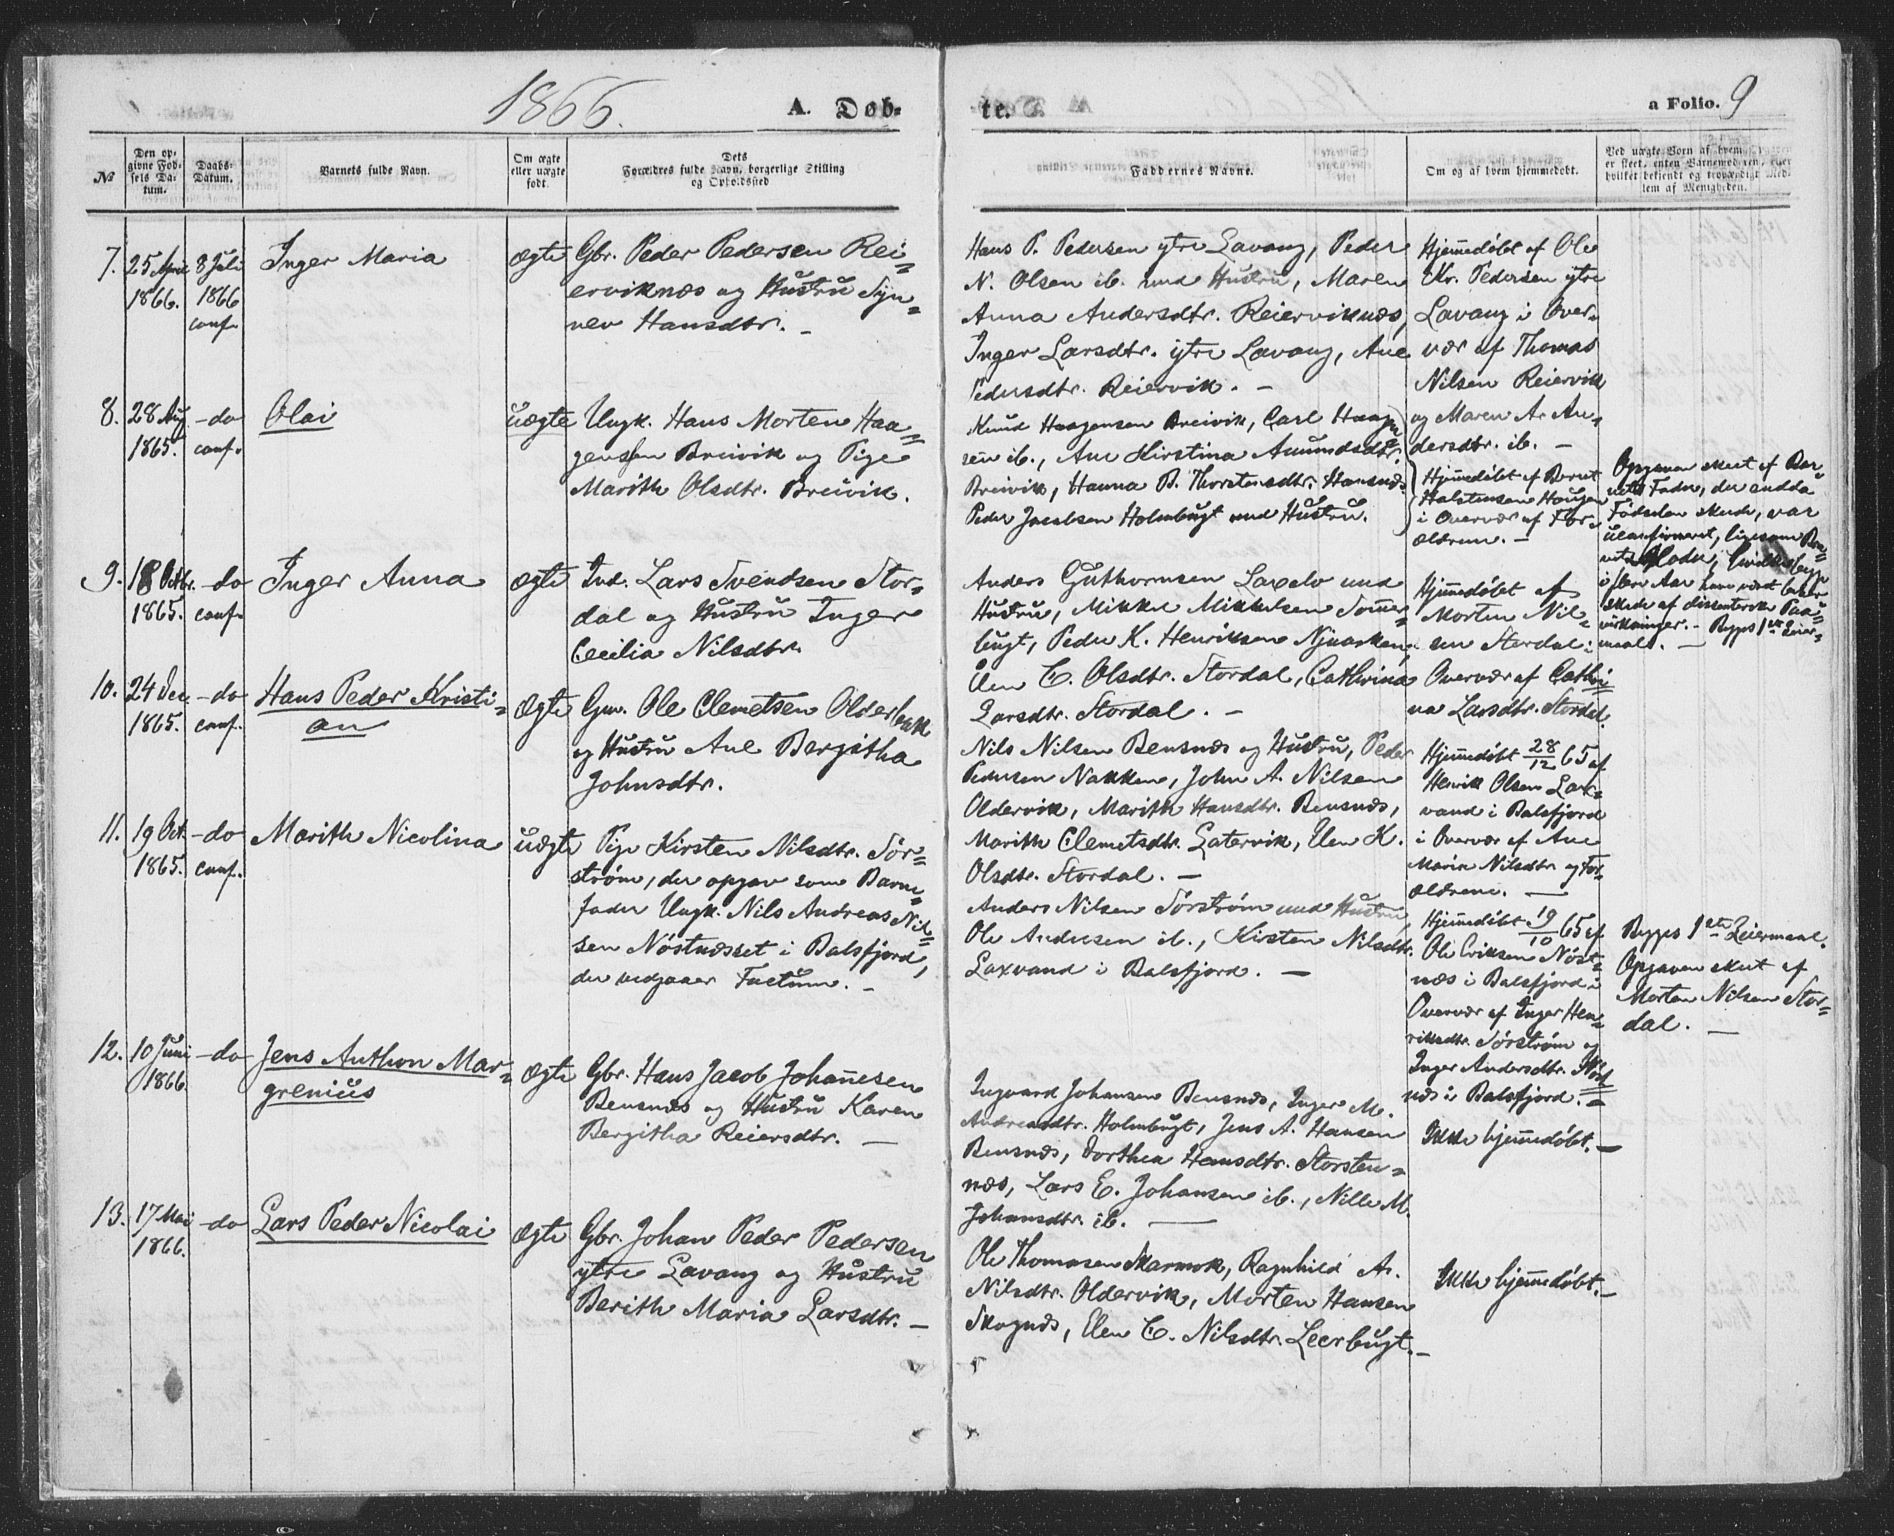 1866.
A. Døb-
te.
a Folio. 9
No
Den op-
givne Fød-
sels Da-
tum.
Daabs-
Datum.
Barnets fulde Navn.
Om ægte
eller uægte
født.
Dets
Forældres fulde Navn, borgerlige Stilling
og Opholdssted
Faddernes Navne.
Om og af hvem hjemmedøbt.
Ved uægte Børn af hvem
er skeet, enten Barnemoderen, eller
hvilket bekjendt og troværdigt Med-
lem af Menigheden.
7.
25 April
1866.
8 Juli
1866
conf.
Inger Maria
ægte
Gbr. Peder Pedersen Rei=
erviknæs og Hustru Syn=
nev Hansdtr. –
Hans P. Pedersen ytre Lavang, Peder
N. Olsen ib. med Hustru, Maren
Anna Andersdtr. Reierviknæs,
Inger Larsdtr. ytre Lavang, Ane
Pedersdtr. Reiervik. –
Hjemmedøbt af Ole
Kr. Pedersen ytre
Lavang i Over-
vær af Thomas
Nilsen Reiervik
og Maren A. An=
dersdtr. ib. –
8.
28 Aug
1865.
–do
conf.
Olai
uægte
Ungk. Hans Morten Haa=
gensen Breivik og Pige
Marith Olsdtr. Breivik.
Knud Haagensen Breivik, Carl Haagen
sen ib., Ane Kirstina Amundsdtr.
Breivik, Hanna B. Thorstensdtr. Hansnæs
Peder Jacobsen Holmbugt med Hustru.
Hjemmedøbt af Bernt
Halstensen Haugen
i Overvær af For-
ældrene. –
Opgaven skeet af Bar=
nets Fader, der endda
Fødselen skede, var
uconfirmeret, ligesom Bar=
nets Moder, hvilke begge
i flere Aar have været
af dissenterske Paa=
virkninger. – Begges 1ste Leier=
maal. –
9.
18 Octbr.
1865.
–do
conf.
Inger Anna
ægte
Ind. Lars Svendsen Stor-
dal og Hustru Inger
Cecilia Nilsdtr.
Anders Guthormsen Laxelv med
Hustru, Mikkel Mikkelsen Sommer=
bugt, Peder K. Henriksen Njaarken,
Elen C. Olsdtr. Stordal, Cathrina
Larsdtr. Stordal. –
Hjemmedøbt af
Morten Nil=
sen Stordal i
Overvær af Cathri
na Larsdtr. Stordal.
10.
24 Dec
1865.
–do
conf.
Hans Peder Kristi=
an
ægte
Gm. Ole Clemetsen Olderbakk
og Hustru Ane Bergitha
Johnsdtr.
Nils Nilsen Bensnæs og Hustru, Peder
Pedersen Nakken, John A. Nilsen
Oldervik, Marith Hansdtr. Bensnæs,
Marith Clemetsdtr. Satervik, Elen K.
Olsdtr. Stordal. –
Hjemmedøbt 28/12 65 af
Henrik Olsen Lax=
vand i Balsfjord
i Overvær af Ane
Maria Nilsdtr og For=
ældrene. –
11.
19 Oct.
1865.
–do
conf.
Marith Nicolina
uægte
Pige Kirsten Nilsdtr. Sør=
strøm, der opgav som Barne=
fader Ungk. Nils Andreas Nil=
sen Nøstnæsset i Balsfjord,
der vedgaaer Factum. –
Anders Nilsen Sørstrøm med Hustru,
Ole Andresen ib., Kirsten Nilsdtr.
Laxvand i Balsfjord. –
Hjemmedøbt 19/10 65 af
Ole Eriksen Nøst=
næs i Balsfjord i
Overvær af Inger Hen=
riksdtr. Sørstrøm og
Inger Andersdtr. Nøst
næs i Balsfjord. –
Begges 1ste Leiermaal.
Opgaven skeet af
Morten Nilsen Stor=
dal. –
12.
10 Juni
1866.
–do
Jens Anthon Mar=
grenius
ægte
Gbr. Hans Jacob Johannesen
Bensnæs og Hustru Karen
Bergitha Reiersdtr. –
Ingvard Johansen Bensnæs, Inger M.
Andreasdtr. Holmbugt, Jens A. Hansen
Bensnæs, Dorthea Hansdtr. Storsten=
næs, Lars E. Johansen ib., Nille M.
Johansdtr. ib. –
Ikke hjemmedøbt. –
13.
17 Mai
1866.
–do
Lars Peder Nicolai
ægte
Gbr. Johan Peder Pedersen
ytre Lavang og Hustru
Berith Maria Larsdtr. –
Ole Thomasen Skarmok, Ragnhild A.
Nilsdtr. Oldervik, Morten Hansen
Skognæs, Elen C. Nilsdtr. Leerbugt. –
Ikke hjemmedøbt. –